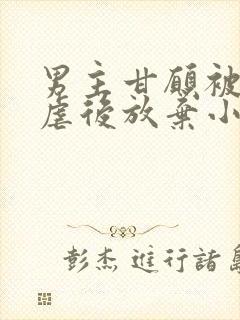 男主甘願被
虐後放棄小
彭杰 進行諸島